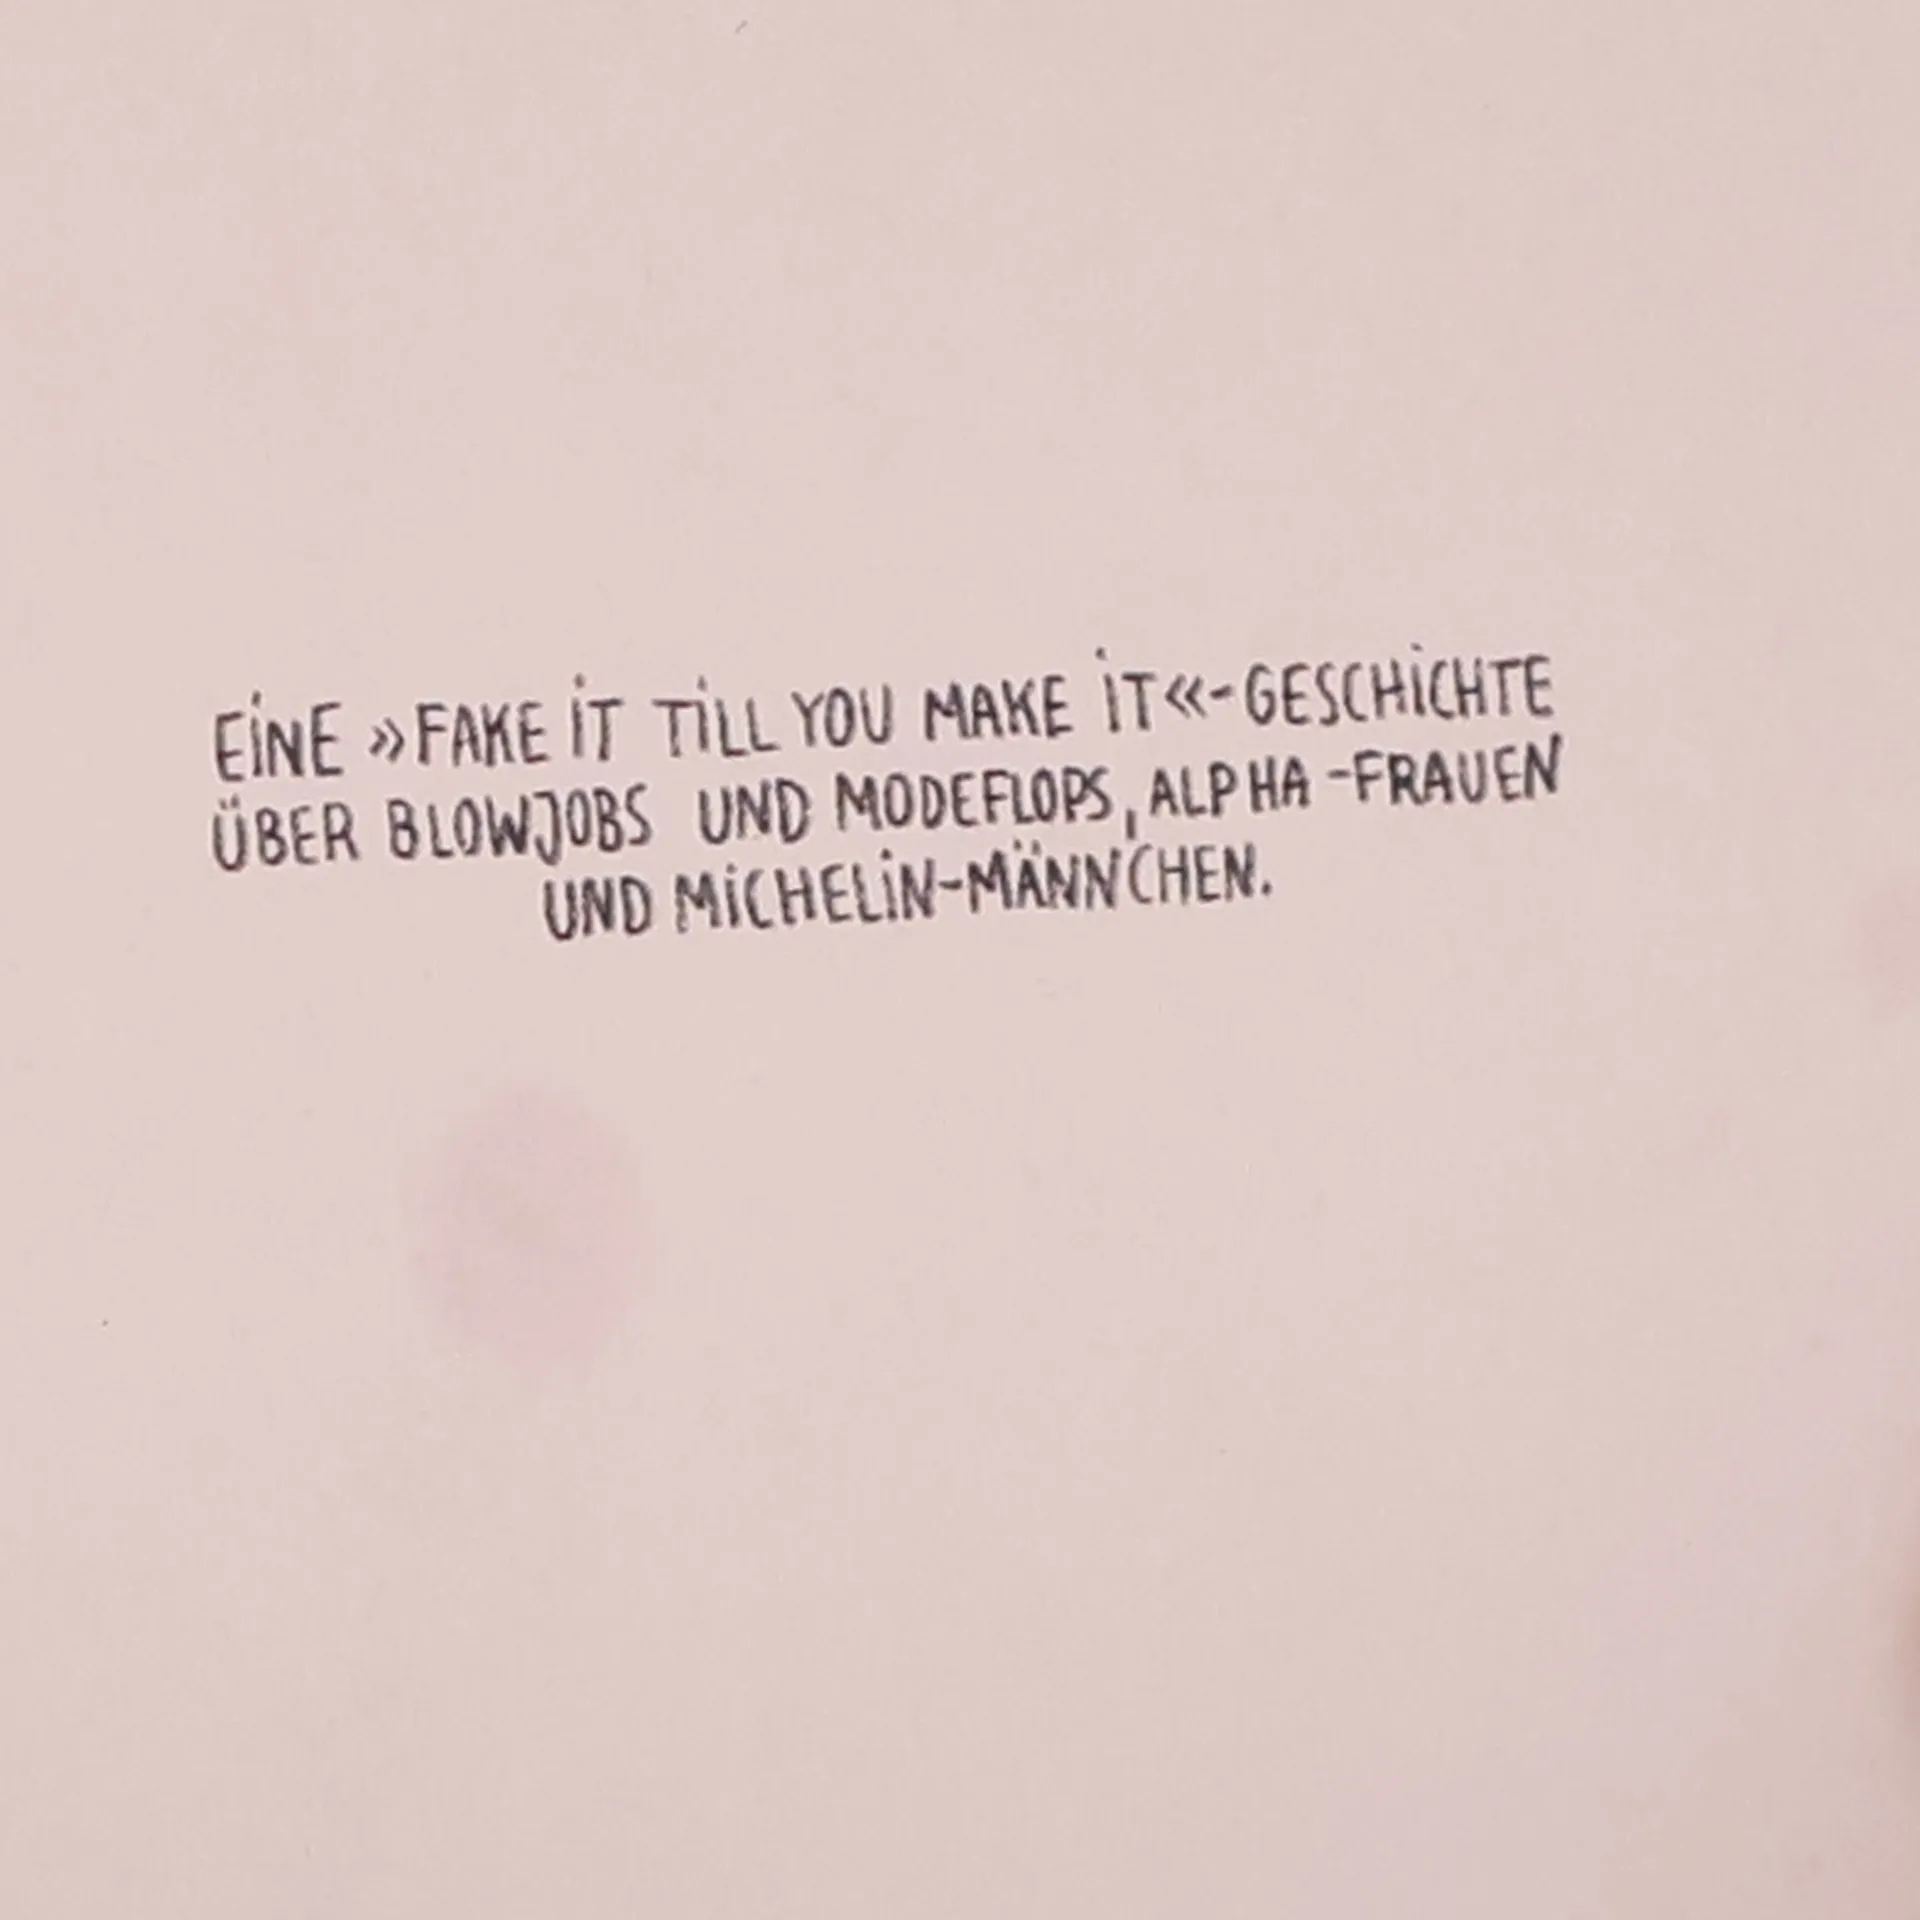 EINE »FAKE IT TILL YOU MAKE IT«-GESCHICHTE
ÜBER BLOWJOBS UND MODEFLOPS, ALPHA-FRAUEN
UND MICHELIN-MÄNNCHEN.